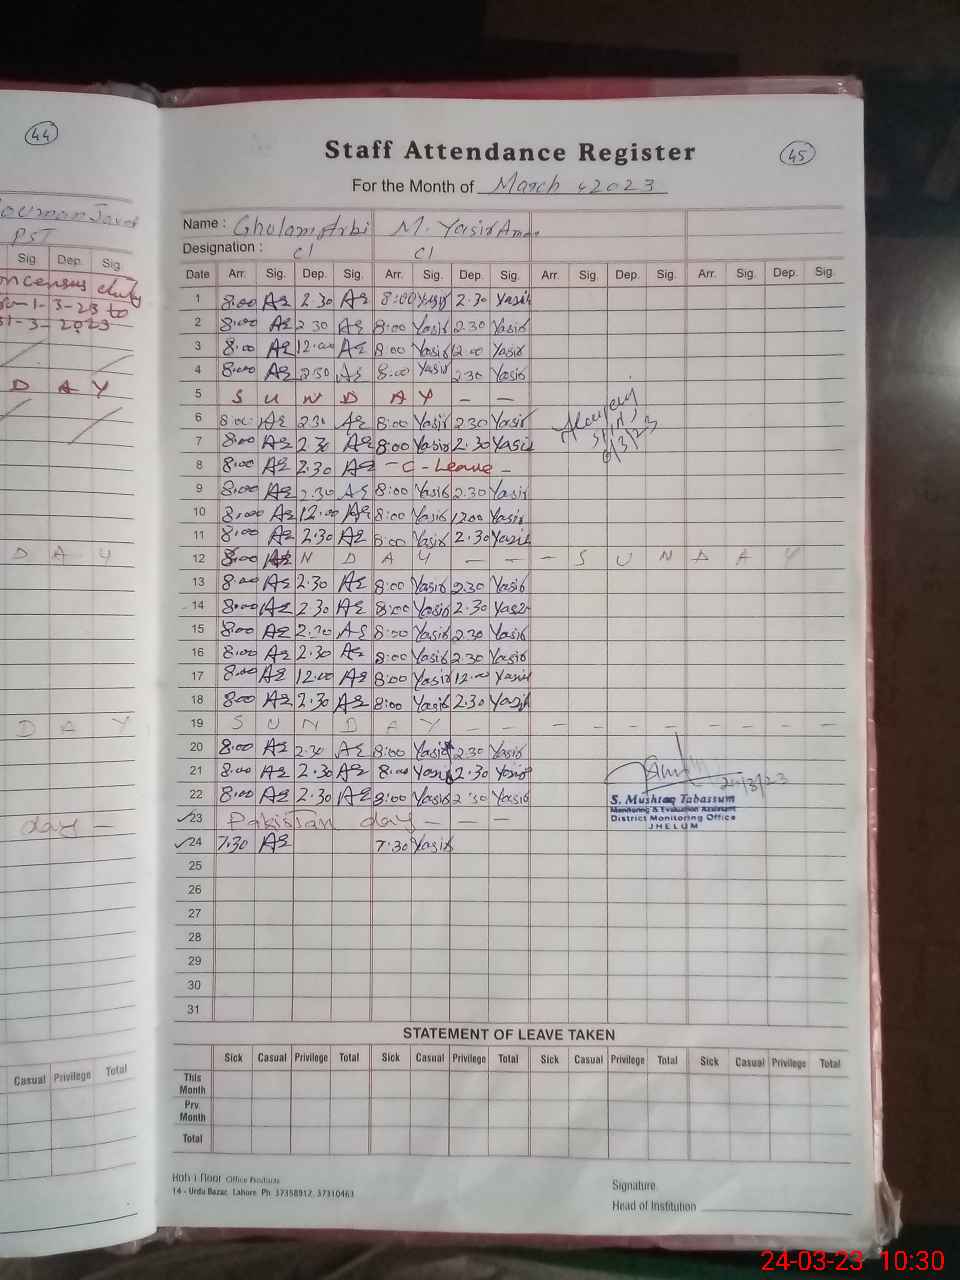 44
PST
Sig. Dep. Sig.
census duty
1-3-23 to
31-3-2023
D A Y
D A Y
D A Y
day —
Casual Privilege Total
Staff Attendance Register
45
For the Month of March 2023
Name : Ghulam Arbi M. Yasir
Designation : C1 C1
Date Arr. Sig. Dep. Sig. Arr. Sig. Dep. Sig. Arr. Sig. Dep. Sig. Arr. Sig. Dep. Sig.
1 8:00 2.30 8:00 Yasir 2.30 Yasir
2 8:00 2.30 8:00 Yasir 2.30 Yasir
3 8:00 12:00 8:00 Yasir 12:00 Yasir
4 8:00 2.30 8:00 Yasir 2.30 Yasir
5 S U N D A Y — —
6 8:00 2.30 8:00 Yasir 2.30 Yasir
7 8:00 2.30 8:00 Yasir 2.30 Yasir
6/3/23
8 8:00 2.30 – C - Leave –
9 8:00 2.30 8:00 Yasir 2.30 Yasir
10 8:00 12:00 8:00 Yasir 12:00 Yasir
11 8:00 2.30 8:00 Yasir 2.30 Yasir
12 8:00 N D A Y — — — S U N D A Y
13 8:00 2.30 8:00 Yasir 2.30 Yasir
14 8:00 2.30 8:00 Yasir 2.30 Yasir
15 8:00 2.30 8:00 Yasir 2.30 Yasir
16 8:00 2.30 8:00 Yasir 2.30 Yasir
17 8:00 12:00 8:00 Yasir 12:00 Yasir
18 8:00 2.30 8:00 Yasir 2.30 Yasir
19 S U N D A Y — — — — — — — — —
20 8:00 2.30 8:00 Yasir 2.30 Yasir
21 8:00 2.30 8:00 Yasir 2.30 Yasir
22 8:00 2.30 8:00 Yasir 2:30 Yasir
S. Mushtaq Tabassum
Monitoring & Evaluation Assistant
District Monitoring Office
JHELUM
23 Pakistan day — — —
24 7.30 7:30 Yasir
25
26
27
28
29
30
31
STATEMENT OF LEAVE TAKEN
Sick Casual Privilege Total Sick Casual Privilege Total Sick Casual Privilege Total Sick Casual Privilege Total
This Month
Prv. Month
Total
Koh i Noor Office Products
14 - Urdu Bazar, Lahore. Ph: 37358912, 37310463
Signature
Head of Institution
24-03-23 10:30